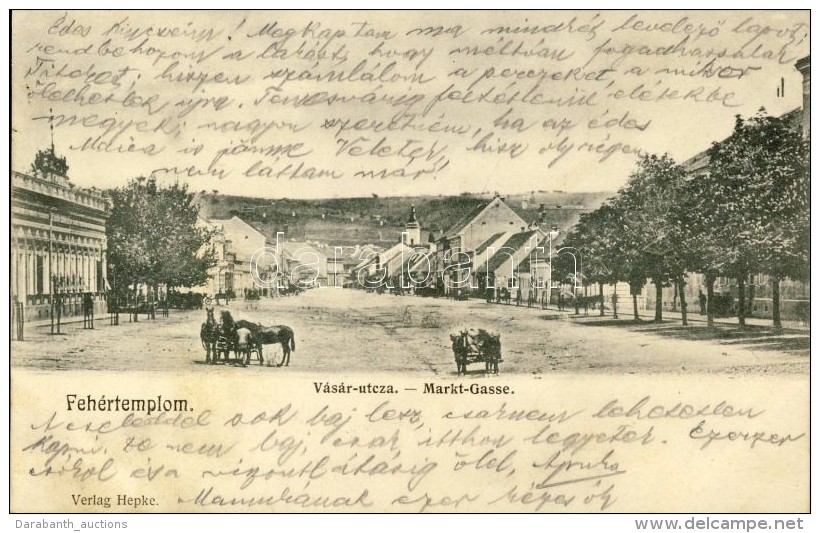 Édes Kincsem! Megkaptam ma mindkét levelező lapot,
rendbehozom a lakást, hogy méltóan fogadhassalak
Titeket, hiszen számlálom a perczeket, a mikor
ölelhetlek újra. Temesvárig feltétlenül elétekbe
megyek, nagyon szeretném, ha az édes
Maica is jönne Veletek, hisz oly régen
nem láttam már!
darabanth
Fehértemplom.
Vásár-utcza. — Markt-Gasse.
Cseléddel sok baj lesz, csaknem lehetetlen
kapni, de nem baj, csak itthon legyetek. Ezerszer
csókol és a viszontlátásig ölel, Apuka
Mamukának ezer kézcsók
Verlag Hepke.
Darabanth_auctions
www.delcampe.net